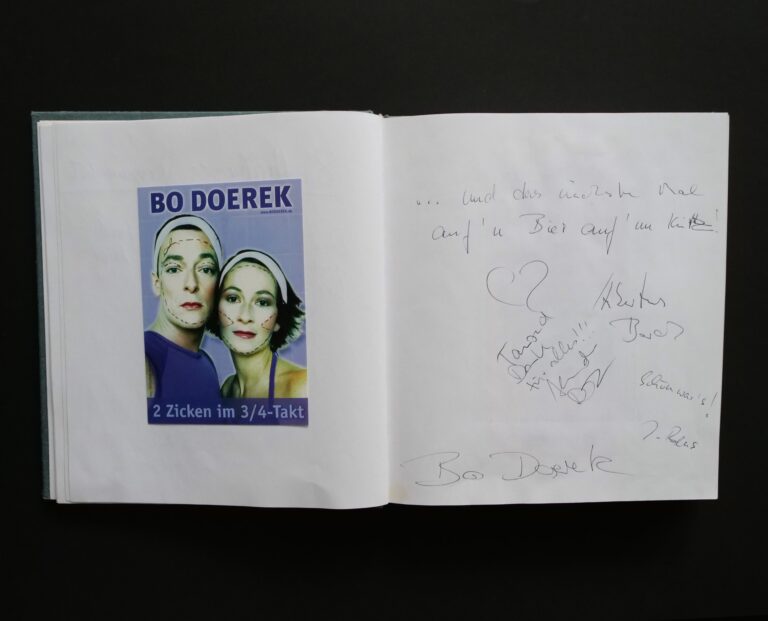 BO DOEREK
www.BODOEREK.de
2 Zicken im 3/4-Takt
... und das nächste Mal
auf'n Bier auf'm
Tausend
Dank
für alles!!!
Schön war's!
Bo Doerek